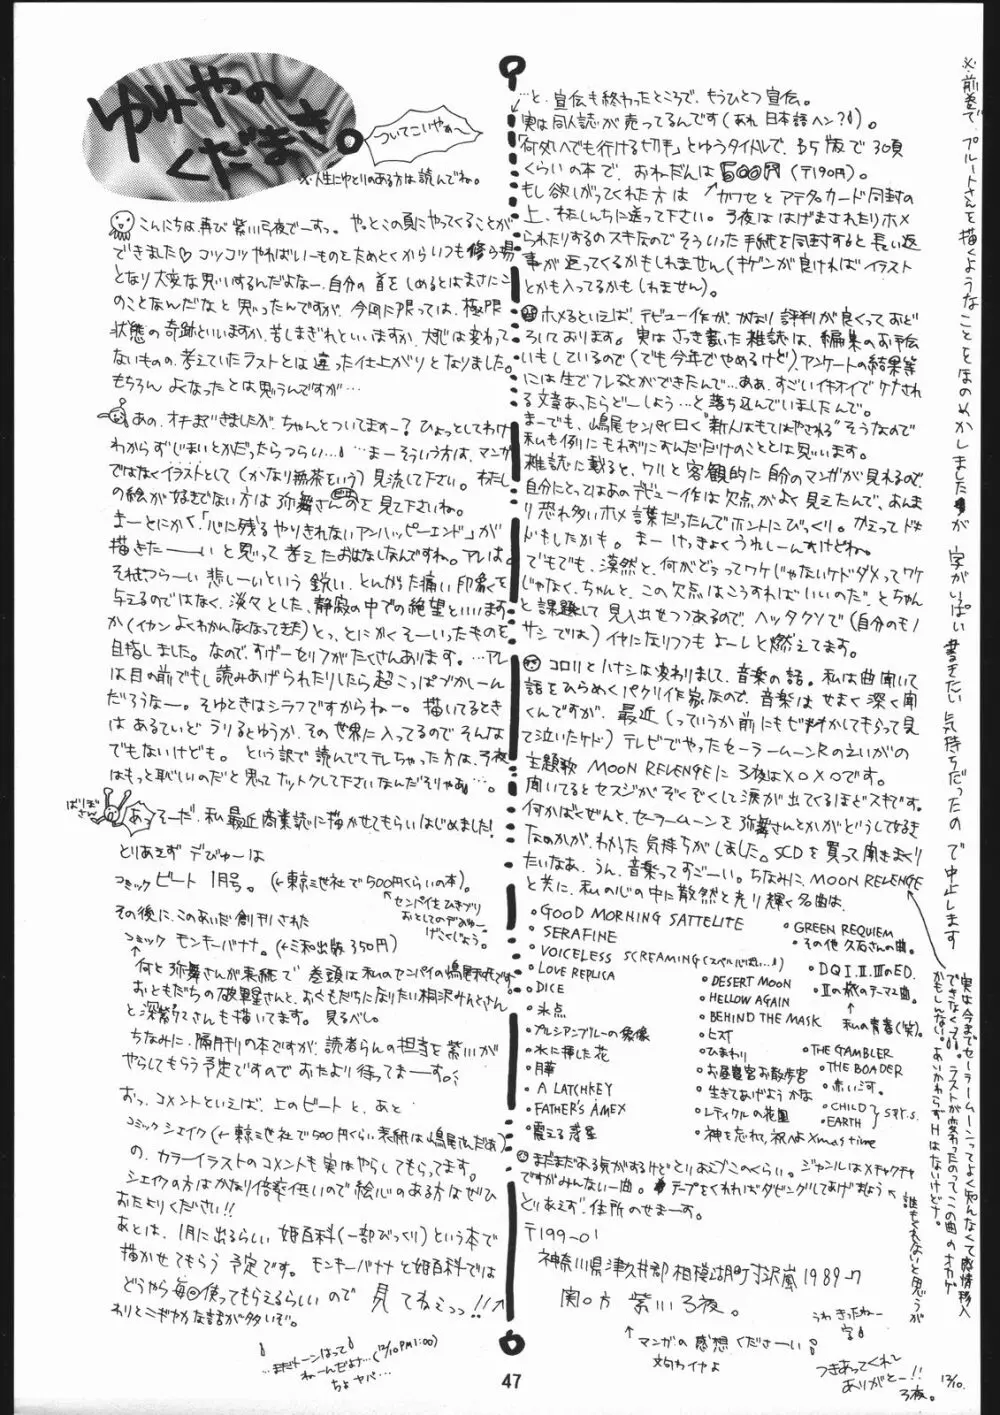 ゆみやの
くだまき。
ついてこいやぁ〜
※人生にゆとりのある方は読んでね。
こんにちは再び紫川弓夜でーすっ。やっとこの頁にやってくることが
できました♡コツコツやればいーものをためとくからいつも修ら場
となり大変な思いするんだよなー。自分の首をしめるとはまさにこ
のことなんだなと思ったんですが、今回に限っては、極限
状態の奇跡といいますか、苦しまぎれといいますか、大ずじは変わって
ないものの、考えていたラストとは違った仕上がりとなりました。
もちろん よくなったとは思うんですが…
あの、オチまできましたが、ちゃんとついてますー?ひょっとしてわけ
わからずじまいとかだったらつらい…。まーそういう方は、マンガ
ではなくイラストとして(かなり無茶という)見流して下さい。わたし
の絵が好きでない方は弥舞さんのを見て下さいね。
まーとにかく「心に残るやりきれないアンハッピーエンド」が
描きたーーいと思って考えたおはなしなんですね。アレは。
それもつらーい 悲しーいという 鋭い、とんがった痛い印象を
与えるのではなく、淡々とした、静寂の中での絶望といいます
か(イカン よくわかんなくなってきた)とっ、とにかくそーいったものを
目指しました。なので、すげーセリフがたくさんあります。…アレ
は目の前でもし読みあげられたりしたら超こっぱづかしーん
だろうなー。そゆときはシラフですからねー。描いてるとき
はあるていどうりるとゆうか、その世界に入ってるのでそんな
でもないけども。という訳で読んでてテレちゃった方は、弓夜
はもっと恥しいのだと思ってナットクして下さいなんだそりゃあ…。
ばりぼりさん
あっそーだ、私最近商業誌に描かせてもらいはじめました!
とりあえずデびゅーは
コミックビート 1月号。(←東京三世社で500円くらいの本)。
その後に、このあいだ創刊された
コミック モンキーバナナ。(←三和出版350円)
何と弥舞さんが表紙で 巻頭は私のセンパイの嶋尾和さんです。
おともだちの破軍星さんと、おともだちになりたい桐沢みんとさん
と深紫さんも描いてます。見るべし。
ちなみに、隔月刊の本ですが、読者らんの担当を紫川が
やらしてもらう予定ですのでおたより待ってまーす。
おっ、コメントといえば、上のビートと、あと
コミックシェイク(←東京三世社で500円くらい表紙は嶋尾さんだあ)
の、カラーイラストのコメントも実はやらしてもらってます。
シェイクの方はかなり倍率低いので絵心のある方はぜひ
おたよりください!!
あとは、1月に出るらしい 姫百科(一部びっくり)という本で
描かせてもらう予定です。モンキーバナナと姫百科では
どうやら毎回使ってもらえるらしいので 見てねえっっ!!
わりとニギやかな話が多いぞ。
…まだトーンはって
ねーんだよナ…(12/10PM1:00)
ちょヤバ…
…と、宣伝も終わったところで、もうひとつ宣伝。
実は同人誌が売ってるんです(あれ日本語ヘン?)。
「何処へでも行ける切手」とゆうタイトルで、B5版で30頁
くらいの本で、おねだんは500円(〒190円)。
もし欲しがってくれた方は カワセとアテ名カード同封の
上、わたしんちに送って下さい。弓夜ははげまされたりホメ
られたりするのスキなのでそういった手紙を同封すると長い返
事が返ってくるかもしれません(キゲンが良ければイラスト
とかも入ってるかもしれません)。
ホメるといえば、デビュー作が、かなり評判が良くっておど
ろいております。実はさっき書いた雑誌は、編集のお手伝
いもしているので(でも今年でやめるけど)、アンケートの結果等
には生でフレることができたんで…ああ、すごいイキオイでケナされ
る文章あったらどーしよう…と落ち込んでいましたんで。
まーでも、嶋尾センパイ曰く"新人はもてはやされる"そうなので
私も例にもれずにすんだだけのこととは思います。
雑誌に載ると、ワリと客観的に自分のマンガが見れるので、
自分にとってはあのデビュー作は欠点がよく見えたんで、あんま
り恐れ多いホメ言葉だったんでホントにびっくり。かえってドキ
ドもしたかも。まーけっきょくうれしーんすけどね。
でもでも、漠然と、何がどうってワケじゃないケドダメってワケ
じゃなく、ちゃんと、この欠点はこうすればいいのだ、とちゃん
と課題として見い出せつつあるので、ヘッタクソで(自分のモノ
サシでは)イヤになりつつもよーしと燃えてます。
コロリとハナシは変わりまして、音楽の話。私は曲聞いて
話をひらめくパクリ作家なので、音楽は せまく深く聞
くんですが、最近(っていうか前にもビデオかしてもらって見
て泣いたケド)テレビでやったセーラームーンRのえいがの
主題歌 MOON REVENGEに弓夜はXOXOです。
聞いてるとセスジがぞくぞくして涙が出てくるほどスキです。
何かばくぜんと、セーラームーンを弥舞さんとかがどうして好き
なのかが、わかった気持ちがしました。SCDを買って聞きまくり
たいなあ。うん、音楽ってすごーい。ちなみに、MOON REVENGE
と共に、私の心の中に散然と光り輝く名曲は、
•GOOD MORNING SATTELITE
•SERAFINE
•VOICELESS SCREAMING(スペル心ぱい…)
•LOVE REPLICA
•DICE
•氷点
•プルシアンブルーの肖像
•水に挿した花
•月華
•A LATCHKEY
•FATHER'S AMEX
•震える惑星
•DESERT MOON
•HELLOW AGAIN
•BEHIND THE MASK
•ヒスイ
•ひまわり
•お昼寝宮お散歩宮
•生きてあげようかな
•レティクルの花園
•神を忘れて、祝へよXmas time
•GREEN REQUIEM
•その他 久石さんの曲。
•DQⅠ.Ⅱ.ⅢのED.
•Ⅱの旅のテーマ2曲。
私の青春(笑)。
•THE GAMBLER
•THE BOADER
•赤い河。
•CHILD
•EARTH
まだまだある気がするけどとりあえずこのくらい。ジャンルはメチャクチャ
ですがみんないー曲。テープをくれればダビングしてあげましょう
とりあえず、住所のせまーす。
誰もくれないと思うが
〒199-01
神奈川県津久井郡相模湖町寸沢嵐1989-7
関口方 紫川弓夜。
マンガの感想くださーい。
文句わイヤよ
うわ きったねー
字
つきあってくれて
ありがとー!!
弓夜。
12/10.
※前巻で、プルートさんを描くようなことをほのめかしましたが 字がいっぱい書きたい気持ちだったので中止します
実は今までセーラームーンってよく知んなくて感情移入
できなくって。ラストが変わったのってこの曲のオカゲ
かもしんない。あいかわらずHはないけどナ。
47